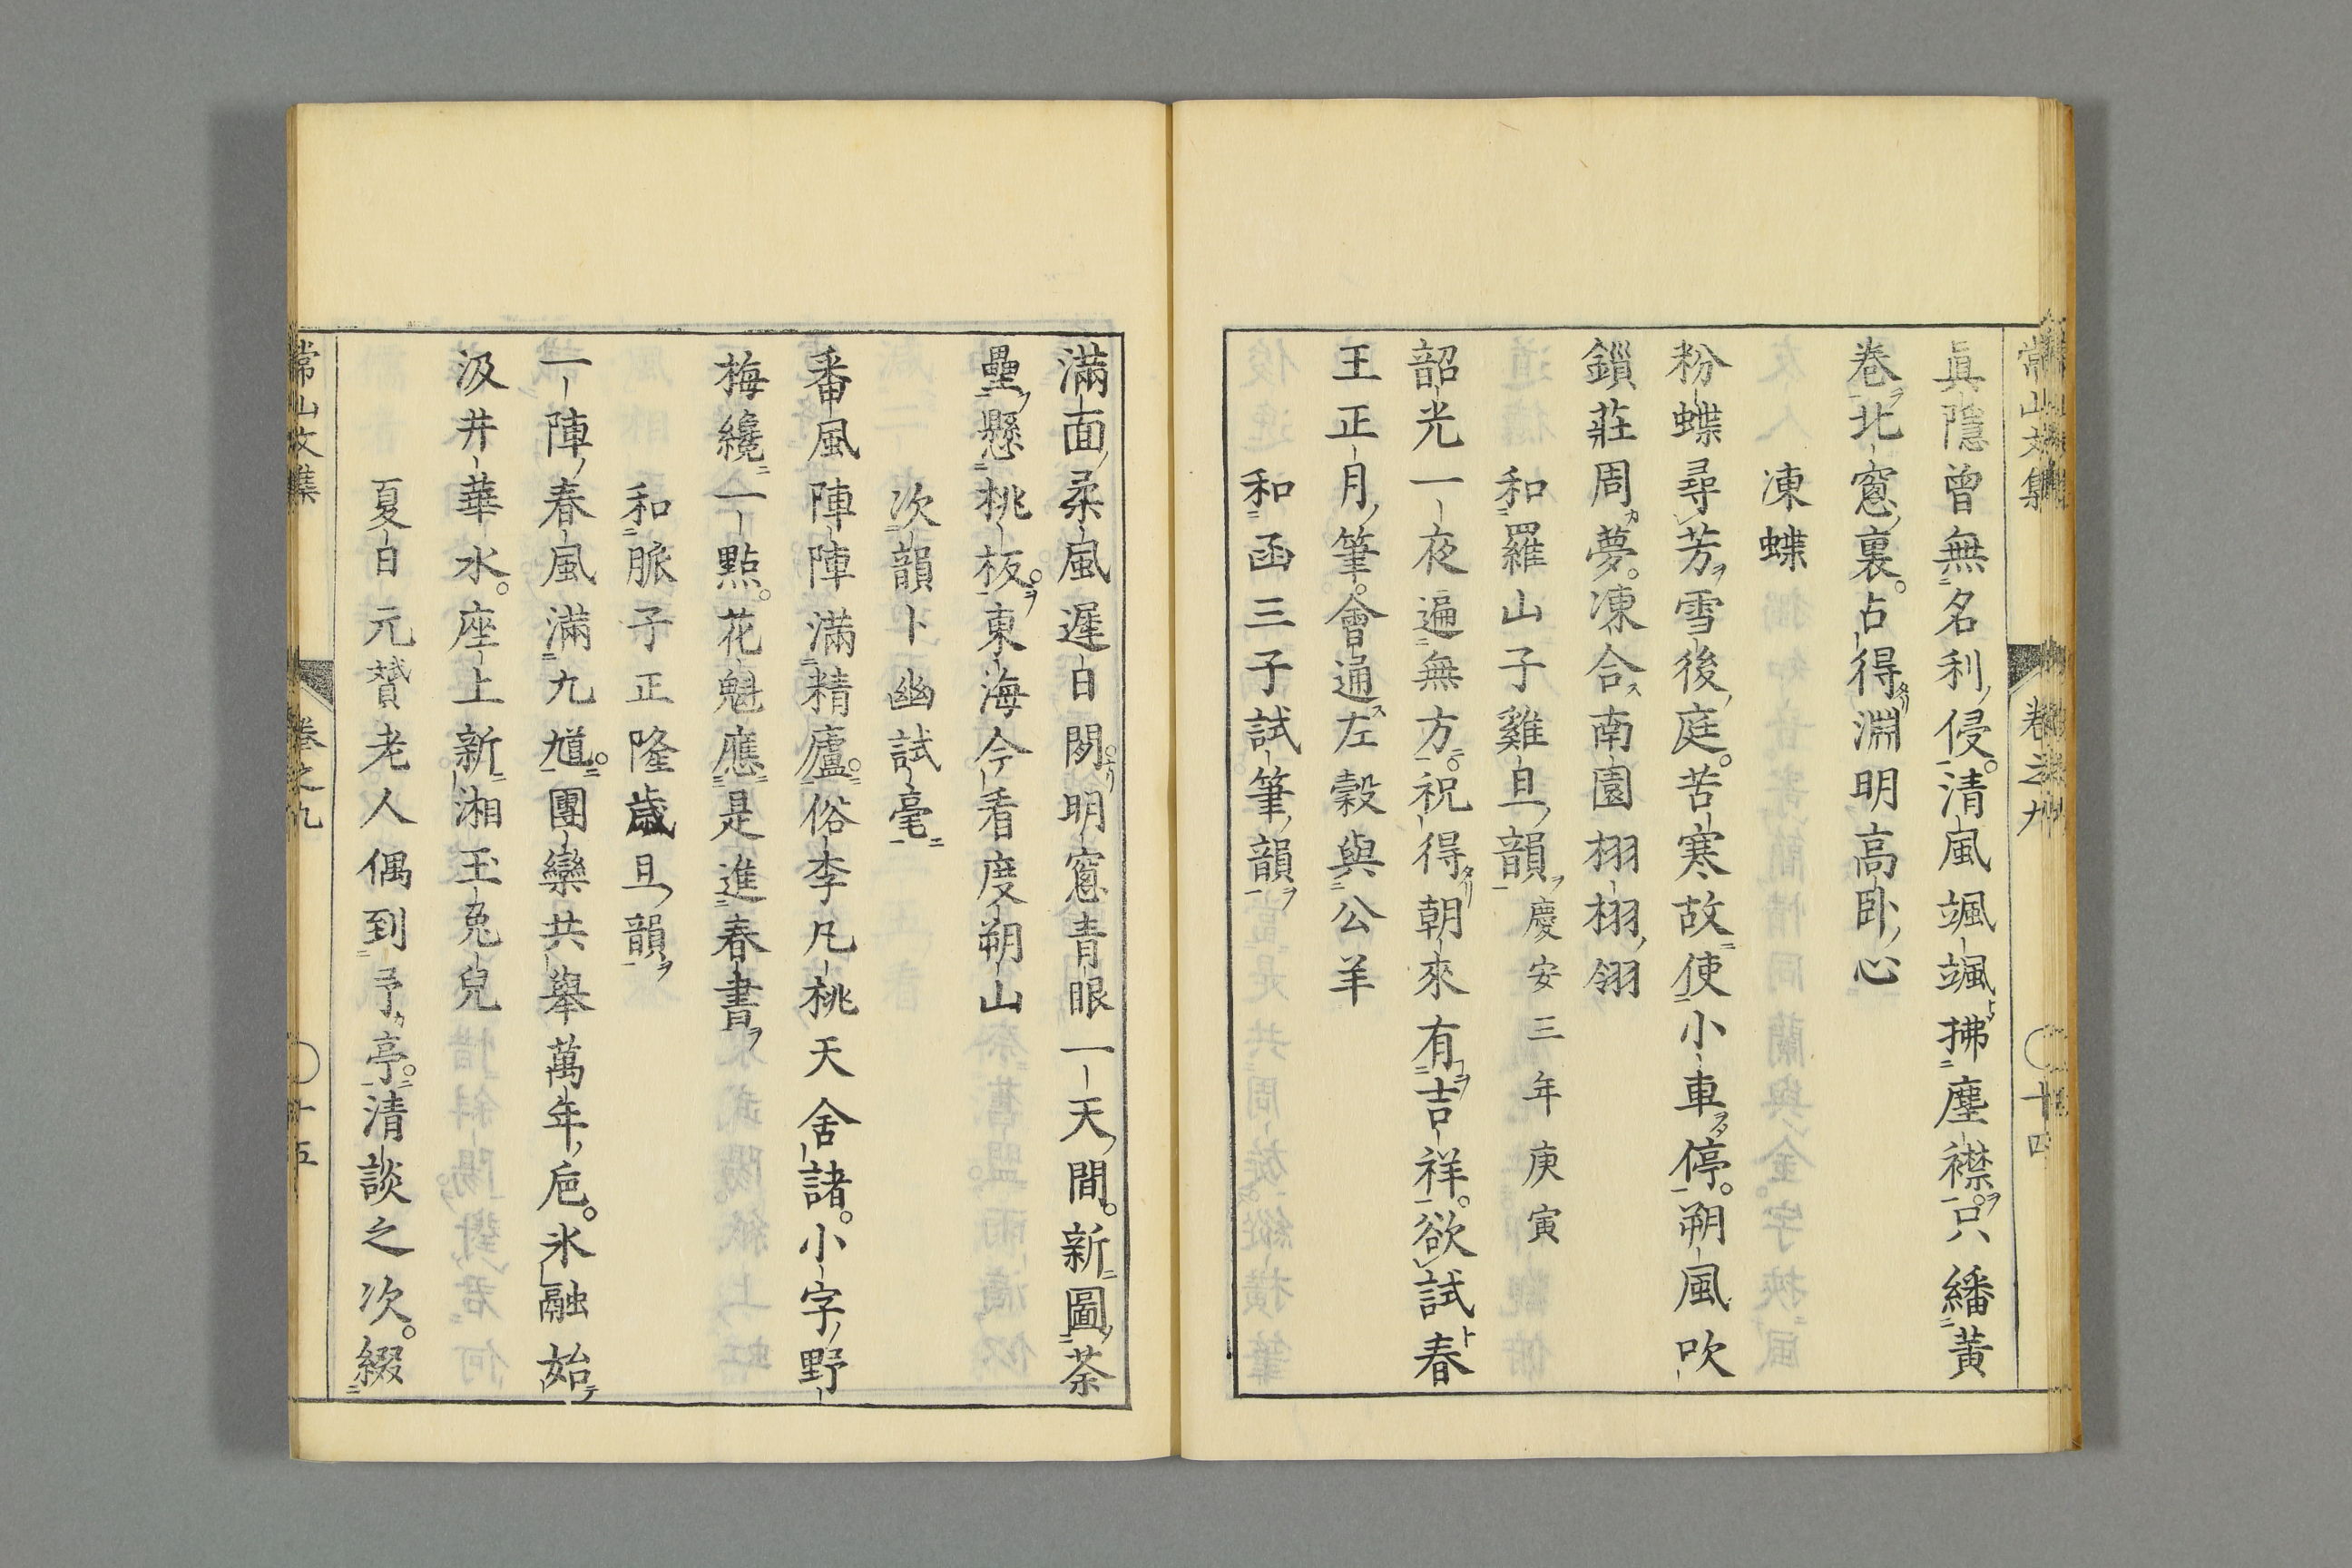 常山文集 卷之九 十四
眞隱曾無名利侵清風颯颯拂塵襟只繙黃
卷北窻裏占得淵明高臥心
凍蝶
粉蝶尋芳雪後庭苦寒故使小車停朔風吹
鎻莊周夢凍合南園栩栩翎
和羅山子雞旦韻慶安三年庚寅
韶光一夜遍無方祝得朝來有吉祥欲試春
王正月筆會通左穀與公羊
和函三子試筆韻
滿面柔風遲日閖明窻青眼一天間新圖荼
壘懸桃板東海今看度朔山
次韻卜幽試毫
番風陣陣滿精廬俗李凡桃天舍諸小字野
梅纔一點花魁應是進春書
和脈子正隆歲旦韻
一陣春風滿九馗團欒共舉萬年巵氷融始
汲井華水座上新湘玉兎兒
夏日元贇老人偶到予亭清談之次綴
常山文集 卷之九 十五